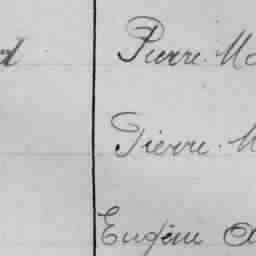 Pierre M
Pierre M
Eugène